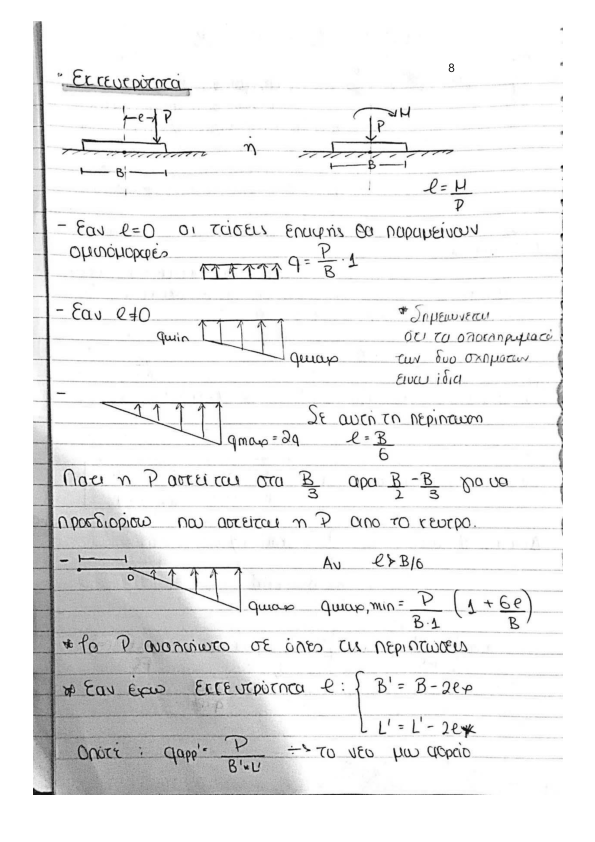 8
- Εκκεντρότητα
e P
P M
ή
B B
e = M/P
- Εαν e=0 οι τάσεις επαφής θα παραμείνουν
ομοιόμορφές q = P/B · 1
- Εαν e≠0
qmin qmax
* Σημειώνεται
ότι τα ολοκληρώματα
των δυο σχημάτων
ειναι ίδια
-
qmax = 2q
Σε αυτη τη περίπτωση
e = B/6
Γιατι η P ασκείται στα B/3 αρα B/2 - B/3 για να
προσδιορίσω που ασκείται η P απο το κεντρο.
- Αν e > B/6
0 qmax qmax,min = P/B·1 (1 + 6e/B)
* Το P αναλοίωτο σε όλες τις περιπτωσεις
* Εαν έχω εκκεντρότητα e : { B' = B - 2e
L' = L' - 2e
Οπότε : qapp' = P/B'*L' → το νέο μου φορείο